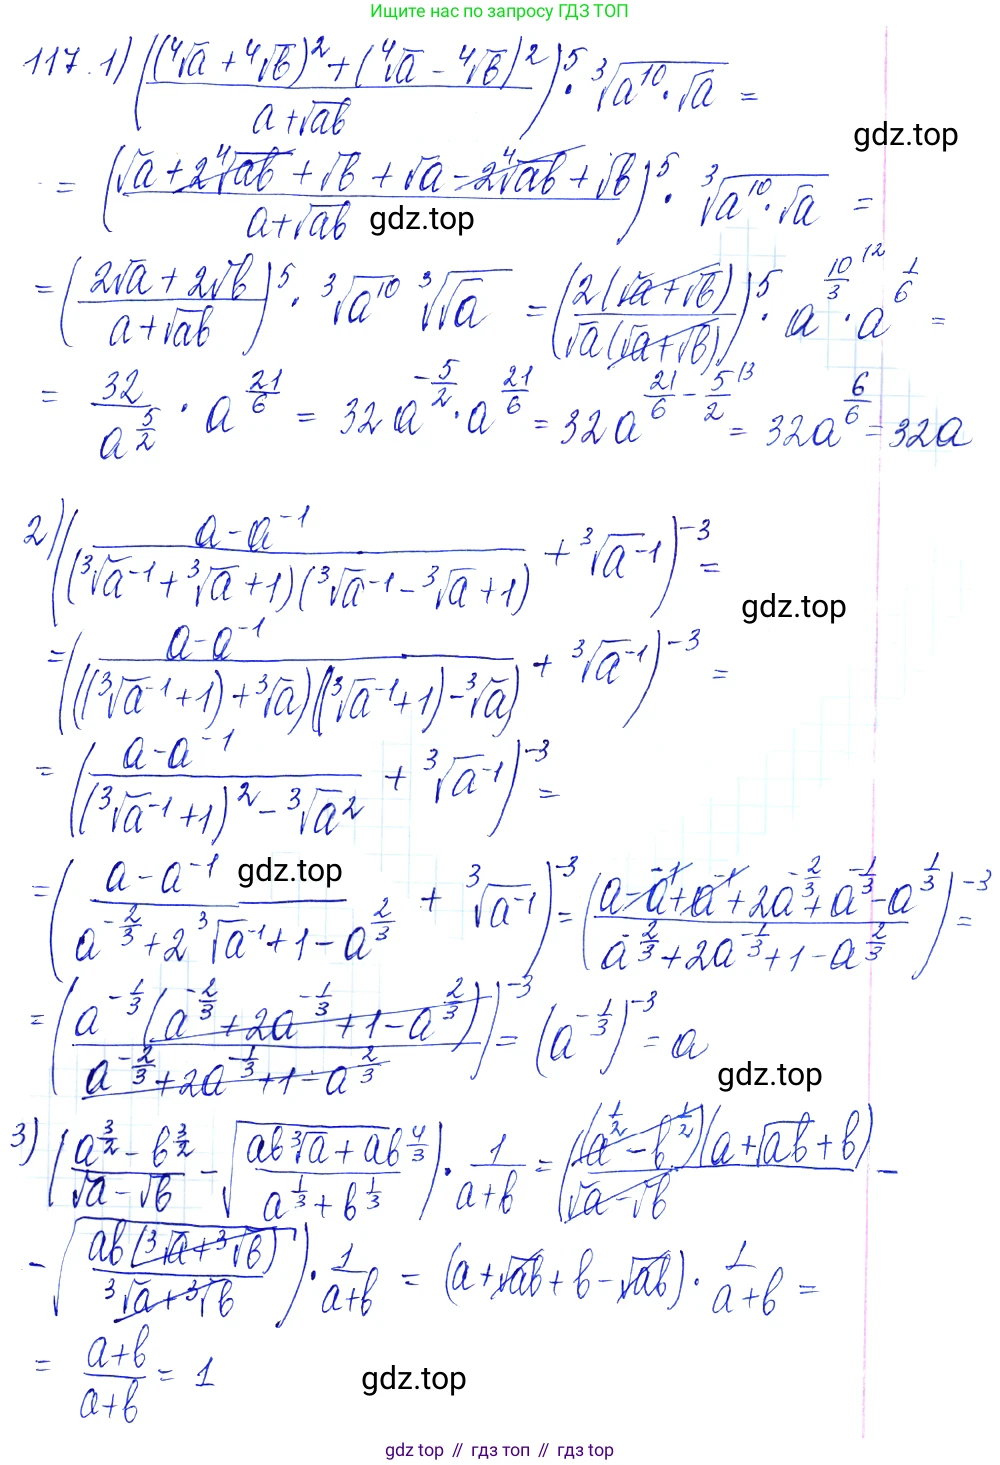 Ищите нас по запросу ГДЗ ТОП
117. 1) (((⁴√a + ⁴√b)² + (⁴√a - ⁴√b)²)/(a + √ab))⁵ · ³√(a¹⁰ · √a) =
gdz.top
= ((√a + 2⁴√ab + √b + √a - 2⁴√ab + √b)/(a + √ab))⁵ · ³√(a¹⁰ · √a) =
gdz.top
= ((2√a + 2√b)/(a + √ab))⁵ · ³√a¹⁰ ³√√a = (2(√a + √b)/(√a(√a + √b)))⁵ · a^(10/3)^(\2) · a^(1/6) =
= 32/a^(5/2) · a^(21/6) = 32a^(-5/2) · a^(21/6) = 32a^(21/6 - 5/2^(\3)) = 32a^(6/6) = 32a
2) ((a - a⁻¹)/((³√a⁻¹ + ³√a + 1)(³√a⁻¹ - ³√a + 1)) + ³√a⁻¹)⁻³ =
gdz.top
= ((a - a⁻¹)/(((³√a⁻¹ + 1) + ³√a)((³√a⁻¹ + 1) - ³√a)) + ³√a⁻¹)⁻³ =
= ((a - a⁻¹)/((³√a⁻¹ + 1)² - ³√a²) + ³√a⁻¹)⁻³ =
gdz.top
= ((a - a⁻¹)/(a^(-2/3) + 2³√a⁻¹ + 1 - a^(2/3)) + ³√a⁻¹)⁻³ = ((a - a⁻¹ + a⁻¹ + 2a^(-2/3) + a^(-1/3) - a^(1/3))/(a^(-2/3) + 2a^(-1/3) + 1 - a^(2/3)))⁻³ =
= (a^(-1/3)(a^(-2/3) + 2a^(-1/3) + 1 - a^(2/3))/(a^(-2/3) + 2a^(-1/3) + 1 - a^(2/3)))⁻³ = (a^(-1/3))⁻³ = a
gdz.top
3) ((a^(3/2) - b^(3/2))/(√a - √b) - √((ab³√a + ab^(4/3))/(a^(1/3) + b^(1/3)))) · 1/(a+b) = ((a^(1/2) - b^(1/2))(a + √ab + b)/(√a - √b) -
- √(ab(³√a + ³√b)/(³√a + ³√b))) · 1/(a+b) = (a + √ab + b - √ab) · 1/(a+b) =
= (a+b)/(a+b) = 1
gdz.top
gdz top // гдз топ // gdz top